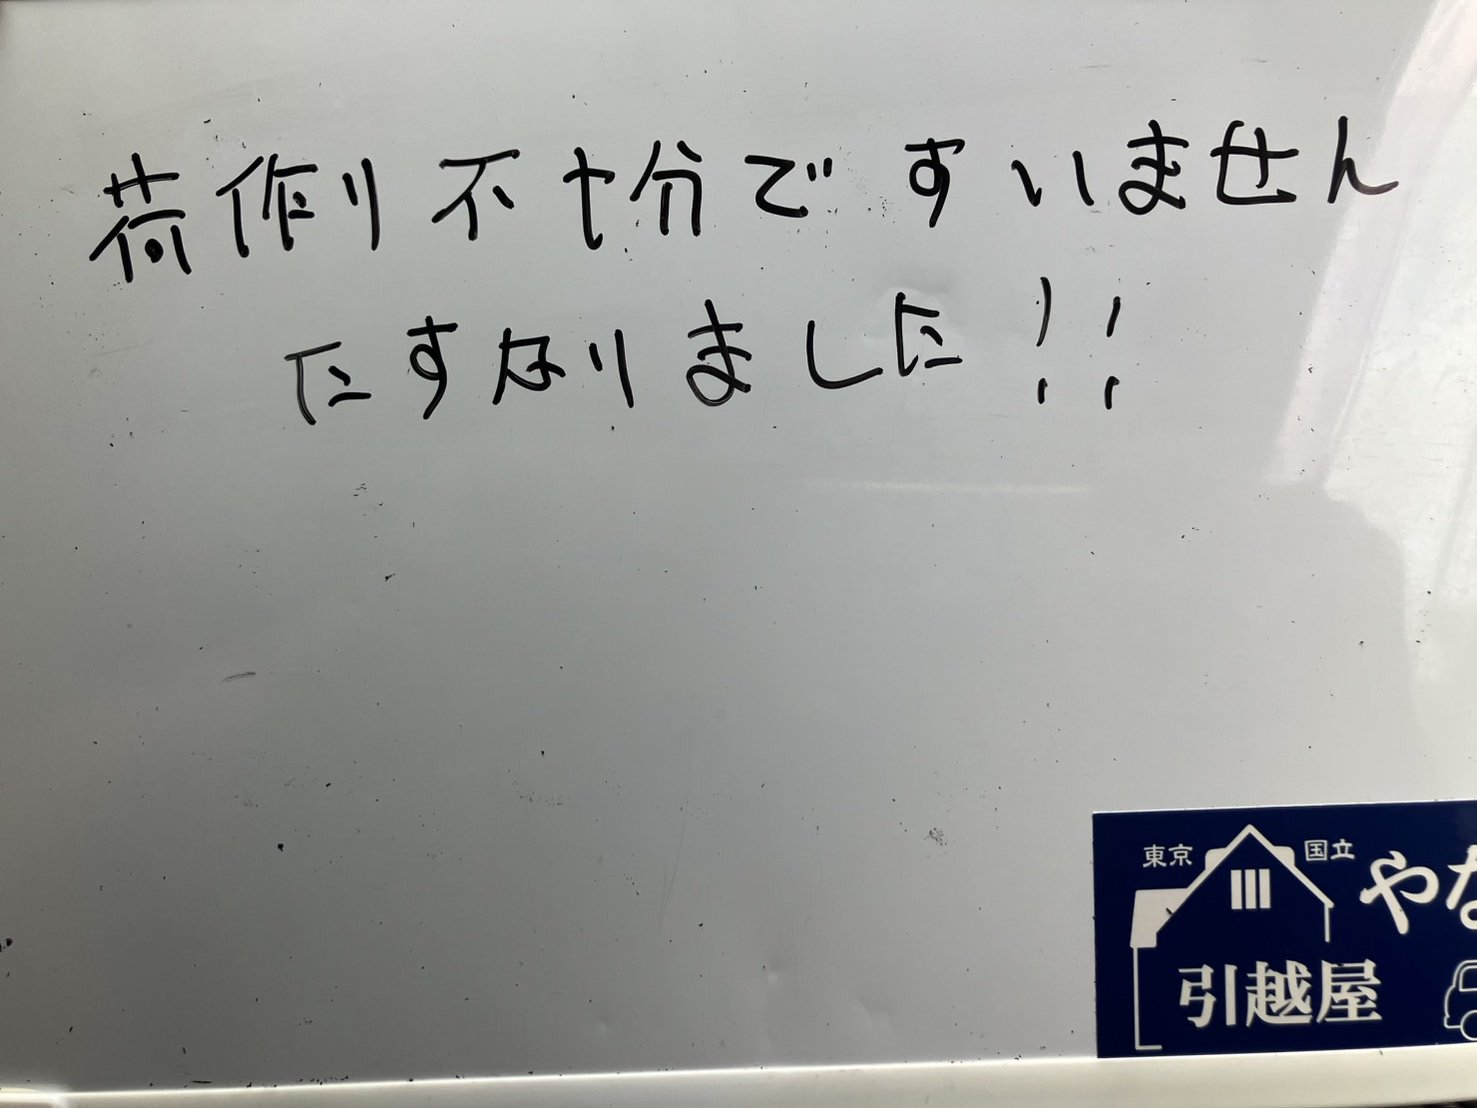 荷作り不十分で すいません
たすなりました!!
東京 国立 やな
引越屋